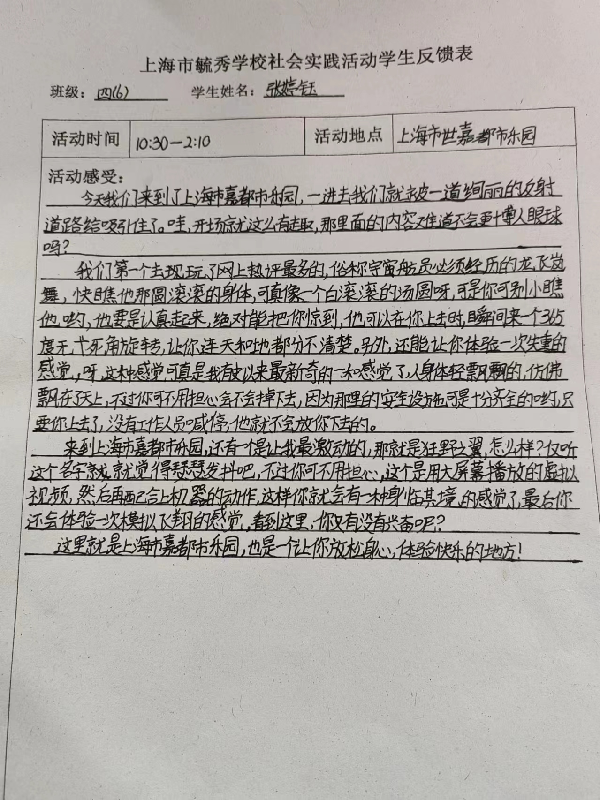 上海市毓秀学校社会实践活动学生反馈表
班级：四(6) 学生姓名：张婷钰
活动时间 10:30—2:10 活动地点 上海市世嘉都市乐园
活动感受：
今天我们来到了上海市嘉都市乐园，一进去我们就被一道绚丽的反射
道路给吸引住了。哇，开场就这么有趣，那里面的内容难道不会更博人眼球
吗？
我们第一个去现玩了网上热评最多的，俗称宇宙航员必须经历的龙飞岚
舞，快瞧他那圆滚滚的身体，可真像一个白滚滚的汤圆呀，可是你可别小瞧
他哟，他要是认真起来，绝对能把你惊到，他可以在你上去时，瞬间来个365
度无死角旋转，让你连天和地都分不清楚。另外，还能让你体验一次失重的
感觉，呀，这种感觉可真是我有史以来最新奇的一种感觉了，人身体轻飘飘的，仿佛
飘在天上，不过你可不用担心会不会掉下去，因为那里的安全设施可是十分齐全的哟，只
要你上去了，没有工作人员喊停，他就不会放你下去的。
来到上海市嘉都市乐园，还有一个是让我最激动的，那就是狂野之翼，怎么样？仅听
这个名字就，就觉得瑟瑟发抖吧，不过你可不用担心，这个是用大屏幕播放的虚拟
视频，然后再配合上机器的动作，这样你就会有一种身临其境的感觉了，最后你
还会体验一次模拟飞翔的感觉，看到这里，你又有没有兴奋呢？
这里就是上海市嘉都市乐园，也是一个让你放松身心，体验快乐的地方！